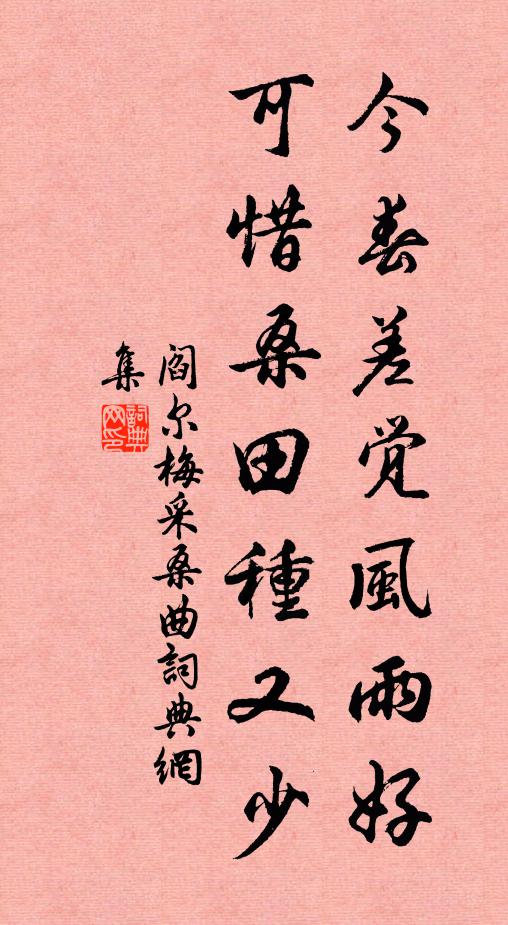 今春差觉風雨好
可惜桑田種又少
阎尔梅采桑曲詞典網
集
詞典網印